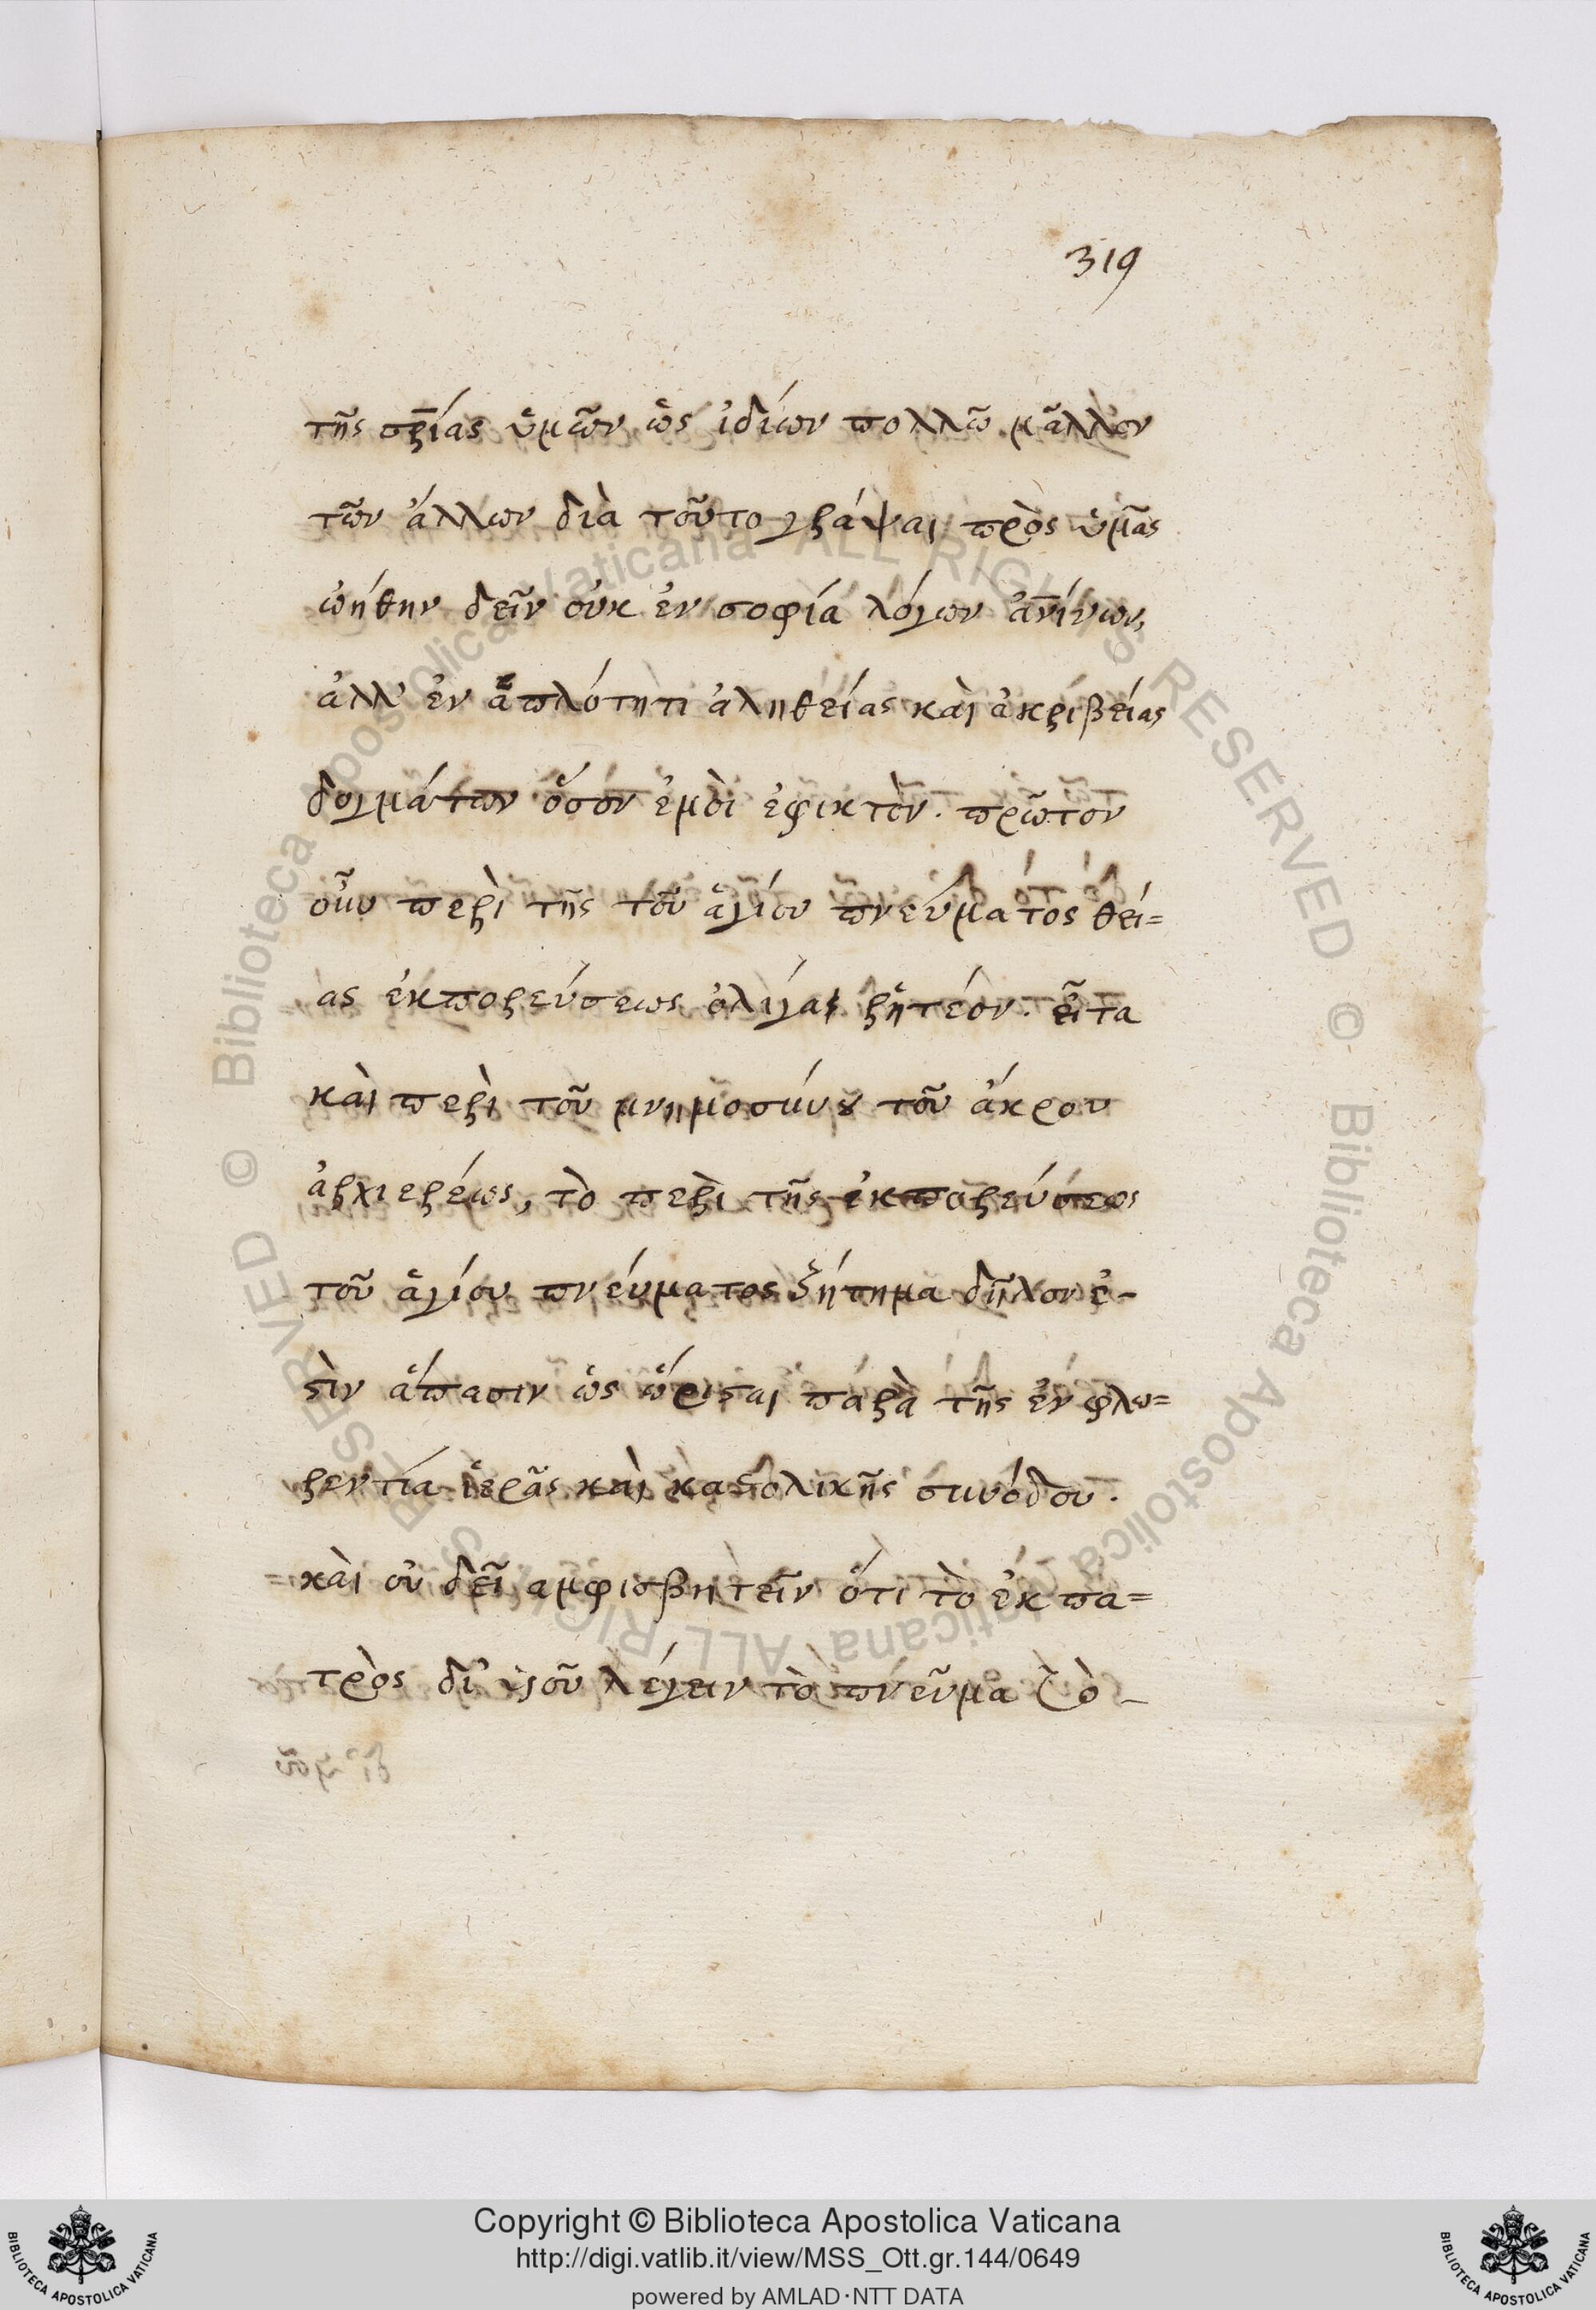 319
τῆς σρίας ὑμῶν, ὡς ἰδίων πολλῶ μᾶλλον
τῶν ἄλλων διὰ τοῦτο γράψαι πρὸς ὑμᾶς
ὠήθην δεῖν οὐκ ἐν σοφία λόγων ἀνίνων,
ἀλλ' ἐν ἁπλότητι ἀληθείας καὶ ἀκριβείας
δογμάτων ὅσον ἐμοὶ ἐφικτὸν. πρῶτον
οὖν περὶ τῆς τοῦ ἁγίου πνεύματος θεί=
ας ἐκπορεύσεως ὀλίγα ῥητέον. εἶτα
καὶ περὶ τοῦ μνημοσύνου τοῦ ἄκρου
ἀρχιερέως, τὸ περὶ τῆς ἐκπορεύσεως
τοῦ ἁγίου πνεύματος ζήτημα δῆλον ἐ-
στὶν ἅπασιν ὡς ὥρισται παρὰ τῆς ἐν φλω=
ρεντία ἱερᾶς καὶ καθολικῆς συνόδου.
καὶ οὐ δεῖ αμφισβητεῖν ὅτι τὸ ἐκ πα=
τρὸς δι' υἱοῦ λέγειν τὸ πνεῦμα τὸ
© Biblioteca Apostolica Vaticana ALL RIGHTS RESERVED © Biblioteca Apostolica Vaticana ALL RIGHTS RESERVED
Copyright © Biblioteca Apostolica Vaticana
http://digi.vatlib.it/view/MSS_Ott.gr.144/0649
powered by AMLAD·NTT DATA
BIBLIOTECA APOSTOLICA VATICANA
BIBLIOTECA APOSTOLICA VATICANA